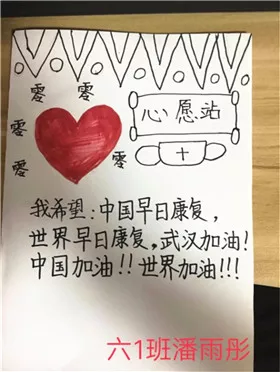 零 零
零
零 零
心愿站
我希望:中国早日康复,
世界早日康复,武汉加油!
中国加油!!世界加油!!!
六1班潘雨彤